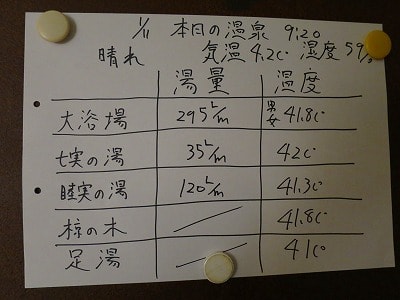 1/11 本日の温泉 9:20
晴れ 気温 4.2℃ 湿度 59%
湯量 温度
大浴場 295ℓ/m 男女 41.8℃
七実の湯 35ℓ/m 42℃
睦実の湯 120ℓ/m 41.3℃
椋の木 ／ 41.8℃
足湯 ／ 41℃